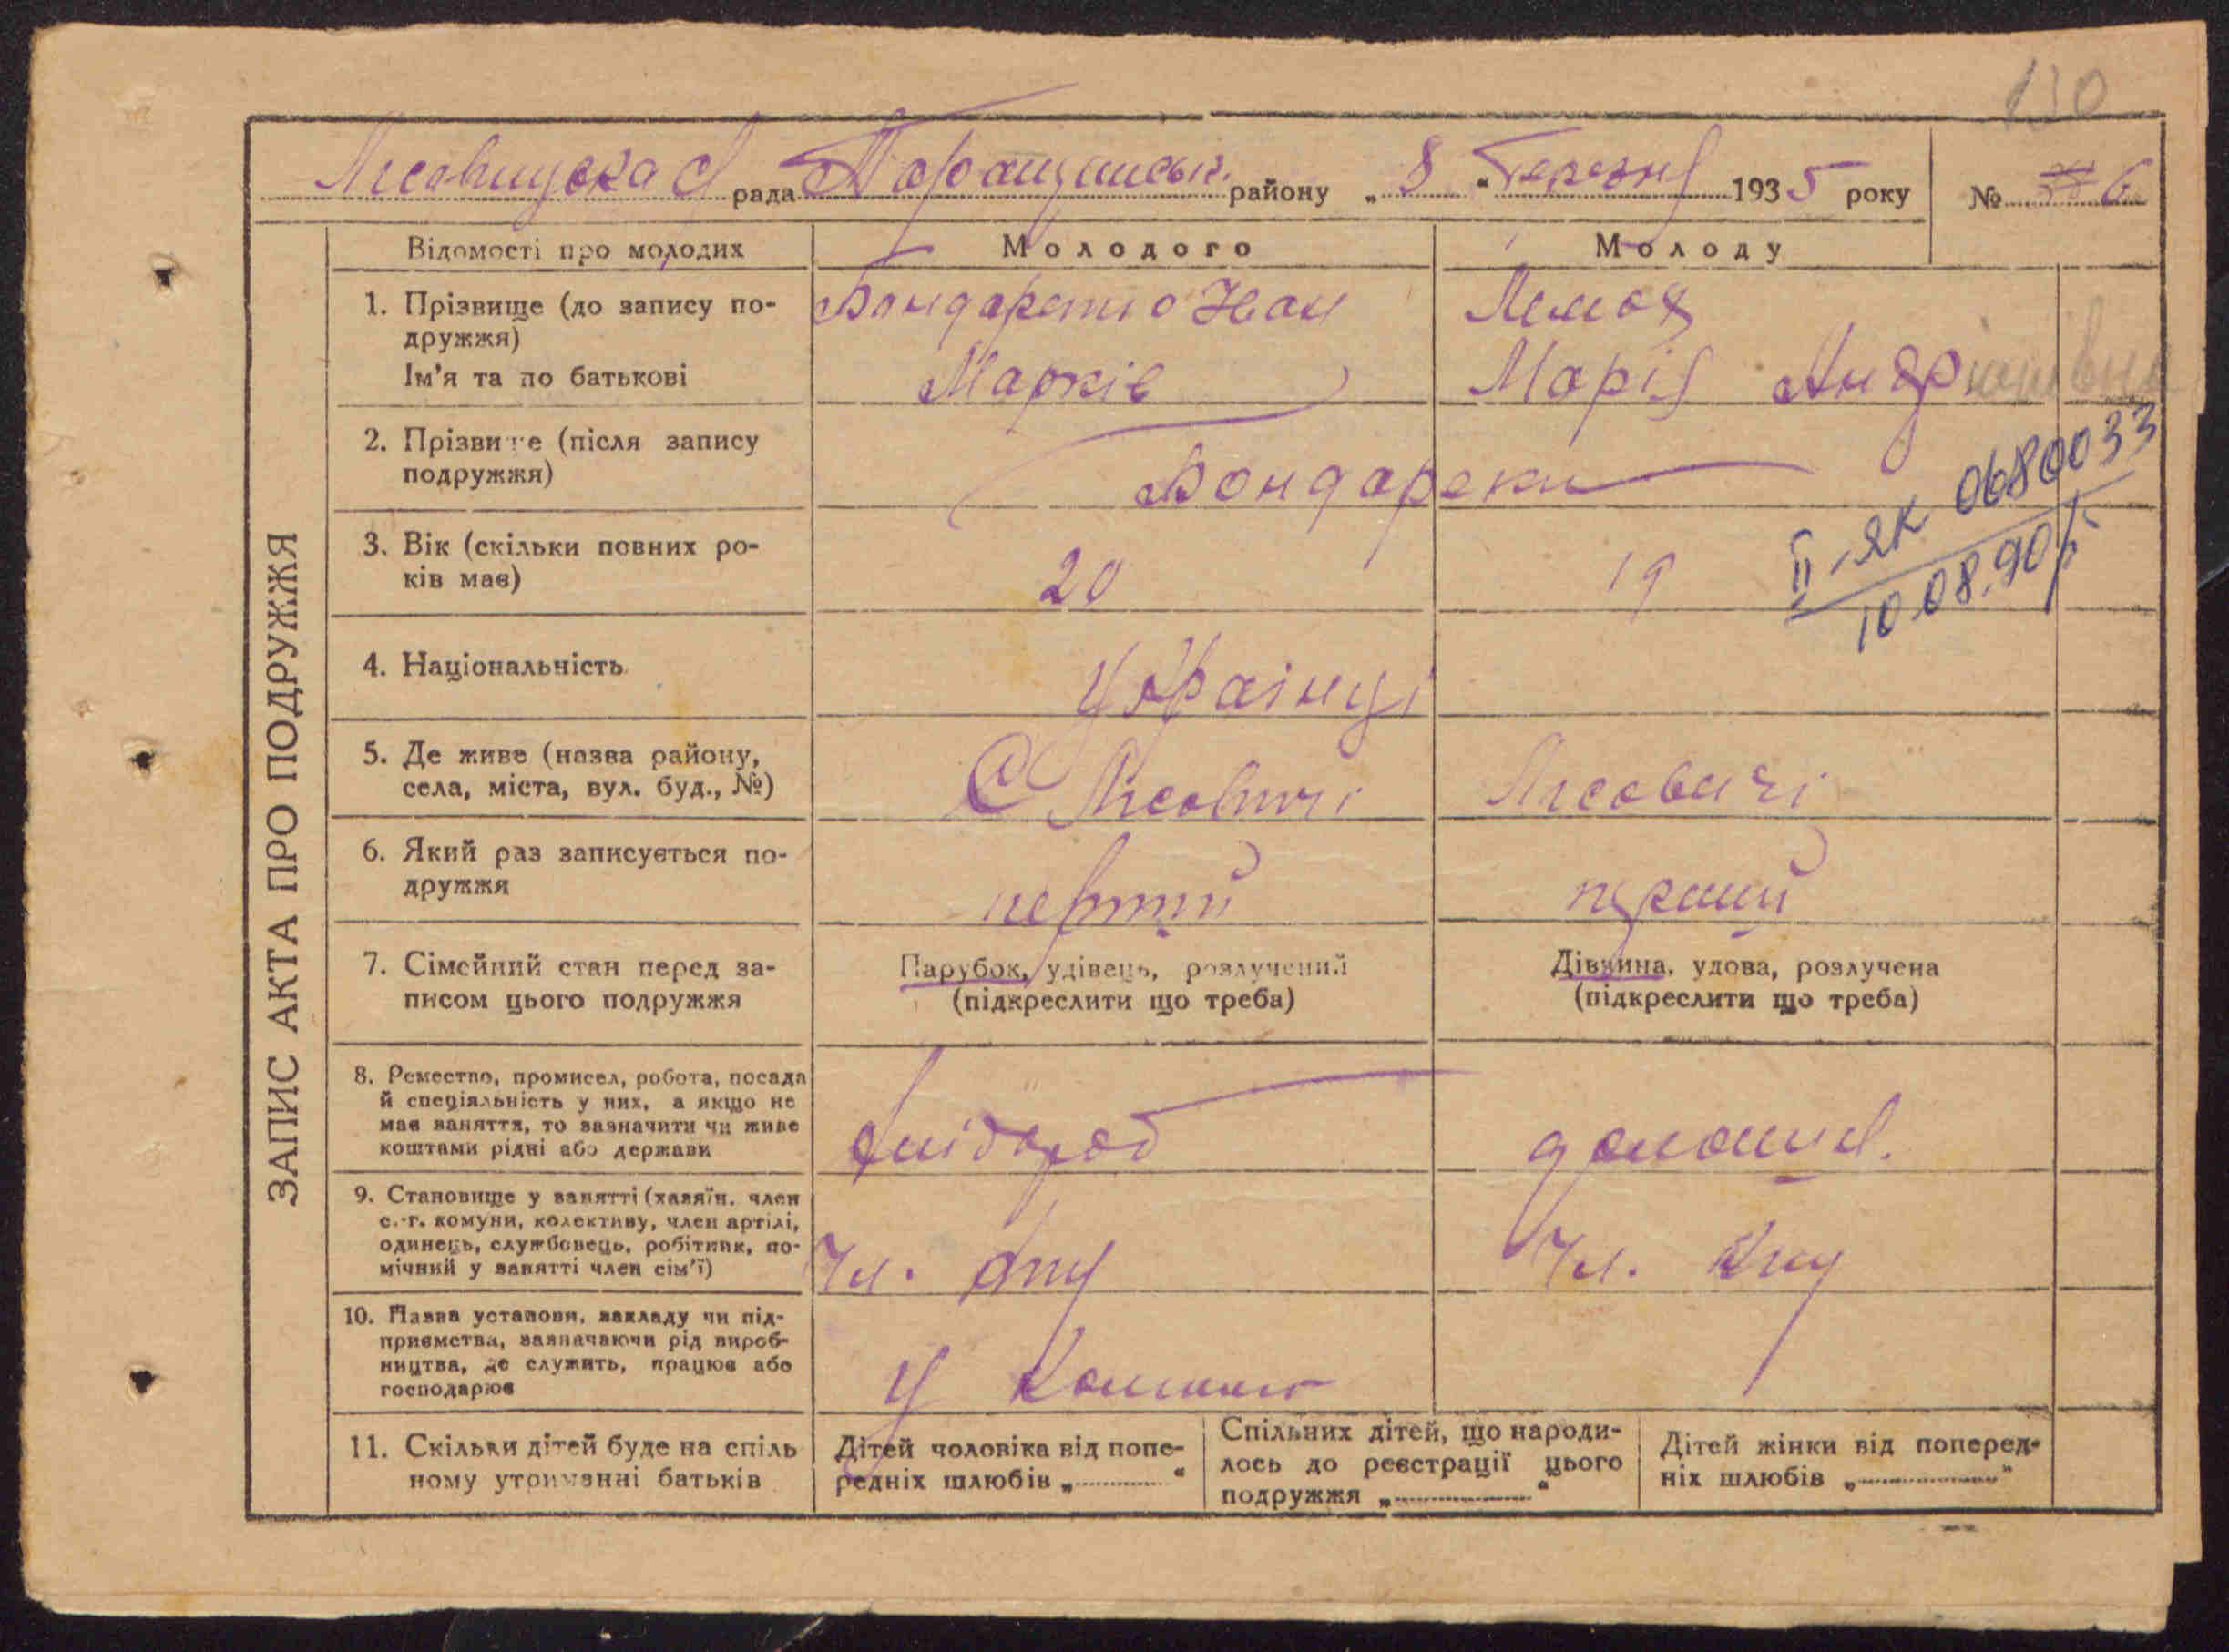 130
Лісовицька с/ рада Таращанськ. району „ 8 “ Березня 1935 року № 6
ЗАПИС АКТА ПРО ПОДРУЖЖЯ
Відомості про молодих Молодого Молоду
1. Прізвище (до запису по-
дружжя)
Ім'я та по батькові
Бондаренко Іван
Марків
Марія Андр
2. Прізвище (після запису
подружжя)
Бондаренки
II-ЯК 0680033
10.08.90р
3. Вік (скільки повних ро-
ків має)
20 19
4. Національність
Українці
5. Де живе (назва району,
села, міста, вул. буд., №)
С Лісовичі Лісовичі
6. Який раз записується по-
дружжя
перший перший
7. Сімейний стан перед за-
писом цього подружжя
Парубок, удівець, розлучений
(підкреслити що треба)
Дівчина, удова, розлучена
(підкреслити що треба)
8. Ремество, промисел, робота, посада
й спеціяльність у них, а якщо не
має заняття, то зазначити чи живе
коштами рідні або держави
хлібороб домашн.
9. Становище у занятті (хазяїн, член
с.-г. комуни, колективу, член артілі,
одинець, службовець, робітник, по-
мічний у занятті член сім'ї)
Чл. Чл.
10. Назва установи, закладу чи під-
приємства, зазначаючи рід вироб-
ництва, де служить, працює або
господарює
У
11. Скільки дітей буде на спіль
ному утриманні батьків
Дітей чоловіка від попе-
редніх шлюбів „ “
Спільних дітей, що народи-
лось до реєстрації цього
подружжя „ “
Дітей жінки від поперед-
ніх шлюбів „ “